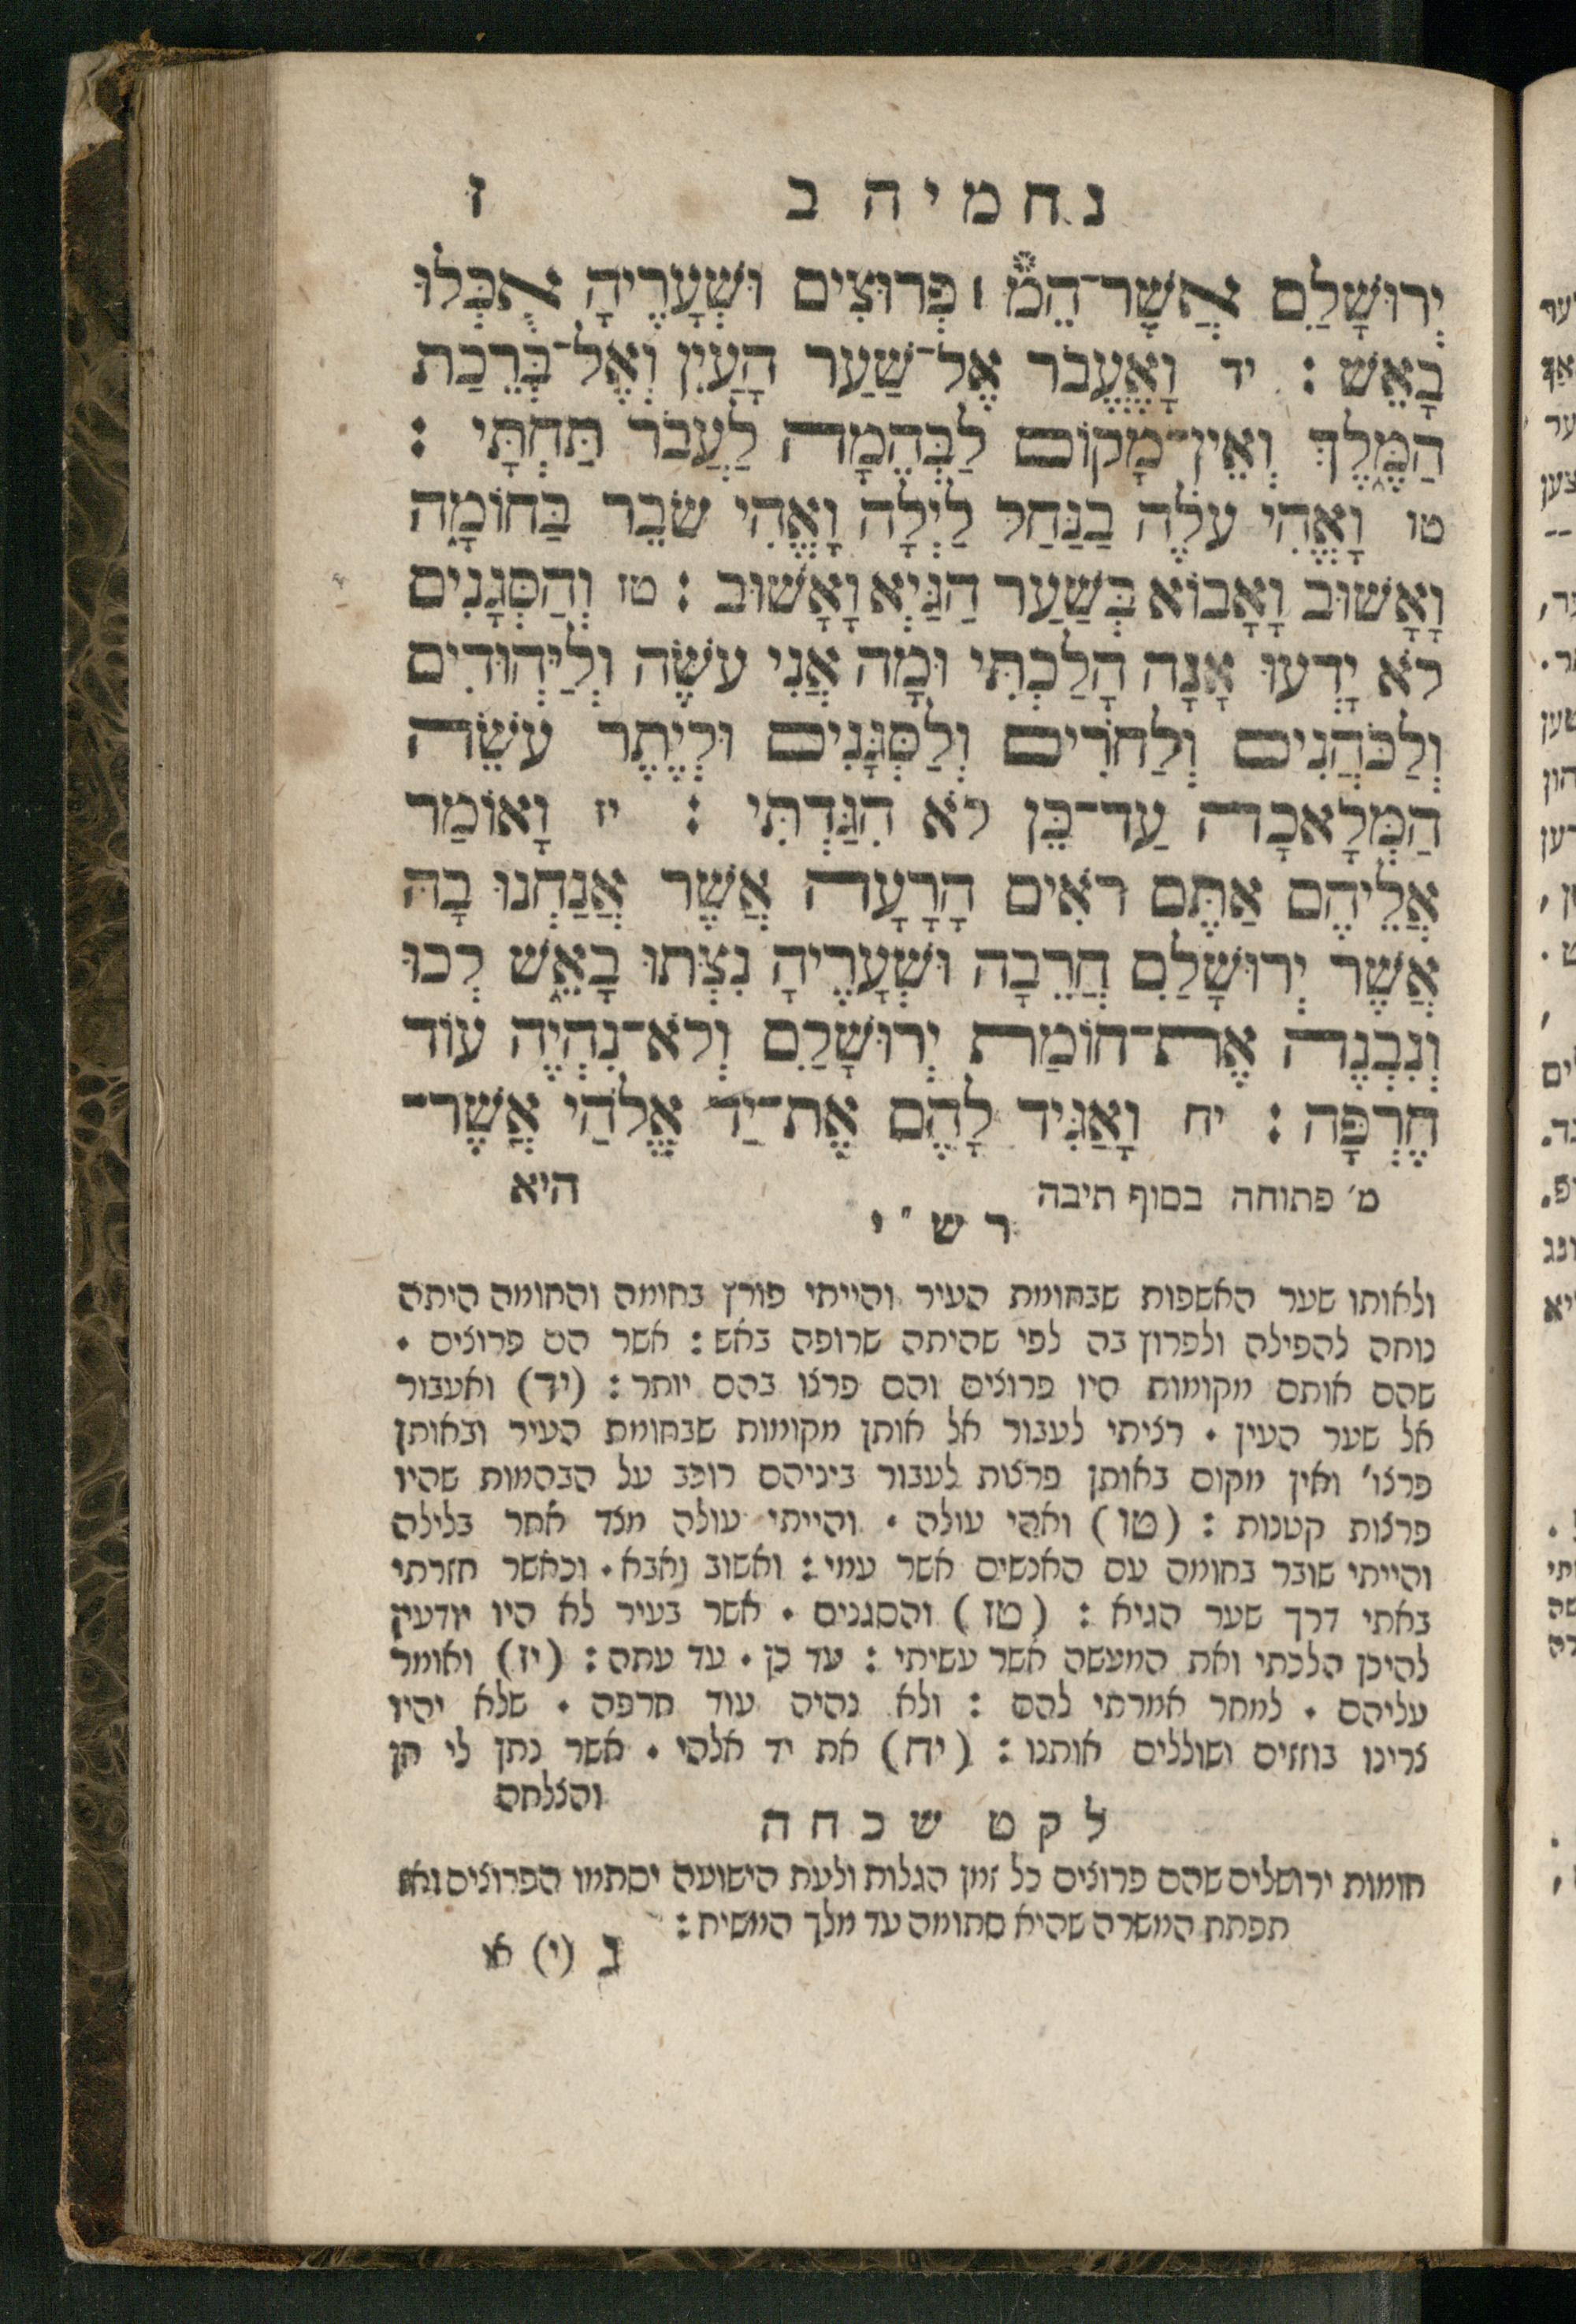 נחמיה ב ז
יְרוּשָׁלַ‍ִם אֲשֶׁר־הֵמ֯ ׀ פְּרוּצִים וּשְׁעָרֶיהָ אֻכְּלוּ
בָאֵשׁ : יד וָאֶעֱבֹר אֶל־שַׁעַר הָעַיִן וְאֶל־בְּרֵכַת
הַמֶּלֶךְ וְאֵין־מָקוֹם לַבְּהֵמָה לַעֲבֹר תַּחְתָּי :
טו וָאֱהִי עֹלֶה בַנַּחַל לַיְלָה וָאֱהִי שֹׂבֵר בַּחוֹמָה
וָאָשׁוּב וָאָבוֹא בְּשַׁעַר הַגַּיְא וָאָשׁוּב : טז וְהַסְּגָנִים
לֹא יָדְעוּ אָנָה הָלַכְתִּי וּמָה אֲנִי עֹשֶׂה וְלַיְּהוּדִים
וְלַכֹּהֲנִים וְלַחֹרִים וְלַסְּגָנִים וּלְיֶתֶר עֹשֵׂה
הַמְּלָאכָה עַד־כֵּן לֹא הִגַּדְתִּי : יז וָאוֹמַר
אֲלֵיהֶם אַתֶּם רֹאִים הָרָעָה אֲשֶׁר אֲנַחְנוּ בָהּ
אֲשֶׁר יְרוּשָׁלַ‍ִם חֲרֵבָה וּשְׁעָרֶיהָ נִצְּתוּ בָאֵשׁ לְכוּ
וְנִבְנֶה אֶת־חוֹמַת יְרוּשָׁלַ‍ִם וְלֹא־נִהְיֶה עוֹד
חֶרְפָּה : יח וָאַגִּיד לָהֶם אֶת־יַד אֱלֹהַי אֲשֶׁר־
מ׳ פתוחה בסוף תיבה היא
רש״י
ולאותו שער האשפות שבחומת העיר והייתי פורץ בחומה והחומה היתה
נוחה להפילה ולפרוץ בה לפי שהיתה שרופה באש : אשר הם פרוצים ·
שהם אותם מקומות היו פרוצים והם פרצו בהם יותר : (יד) ואעבור
אל שער העין · רציתי לעבור אל אותן מקומות שבחומת העיר ובאותן
פרצו׳ ואין מקום באותן פרצות לעבור ביניהם רוכב על הבהמות שהיו
פרצות קטנות : (טו) ואהי עולה · והייתי עולה מצד אחר בלילה
והייתי שובר בחומה עם האנשים אשר עמי : ואשוב ואבא · וכאשר חזרתי
באתי דרך שער הגיא : (טז) והסגנים · אשר בעיר לא היו יודעין
להיכן הלכתי ואת המעשה אשר עשיתי : עד כן · עד עתה : (יז) ואומר
עליהם · למחר אמרתי להם : ולא נהיה עוד חרפה · שלא יהיו
צרינו בוזזים ושוללים אותנו : (יח) את יד אלהי · אשר נתן לי חן
והצלחם
לקט שכחה
חומות ירושלים שהם פרוצים כל זמן הגלות ולעת הישועה יסתמו הפרוצים ואז
תפתח המשרה שהיא סתומה עד מלך המשיח :
ב (י) א